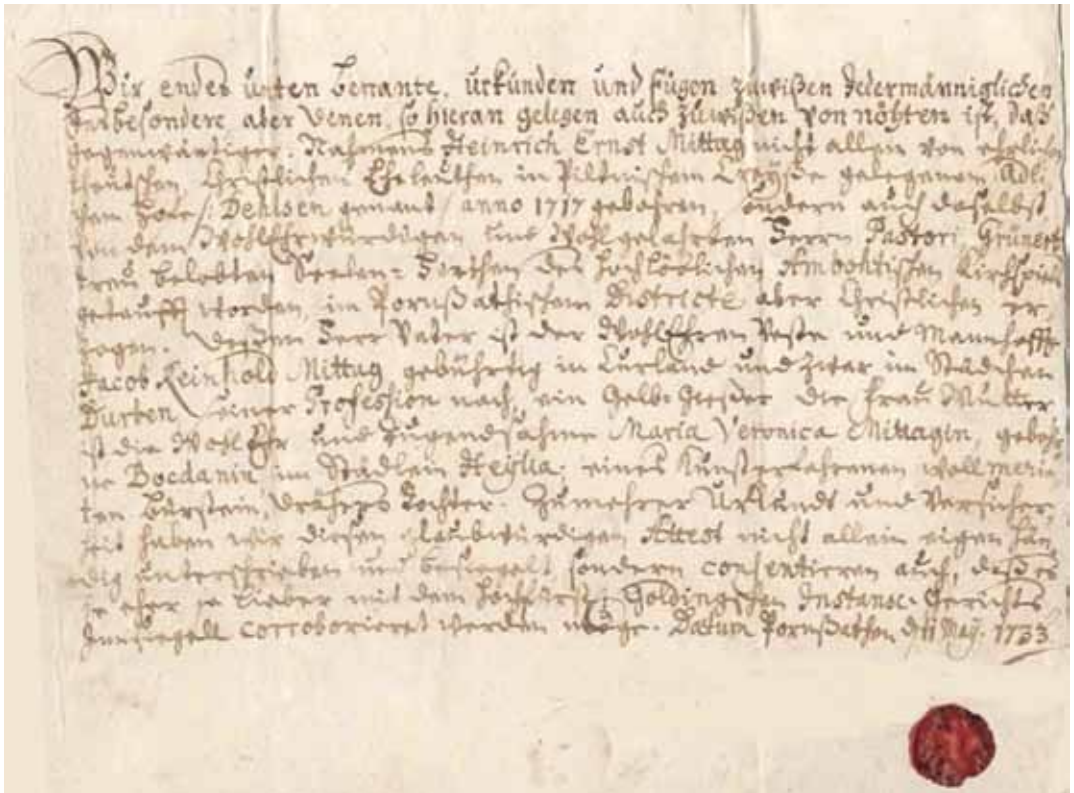 Wir endes unten benante, urkunden und fügen zuwißen Jedermänniglichen
Insbesondere aber denen, so hieran gelegen auch zuwißen von nöhten ist, daß
gegenwärtiger, Nahmens Heinrich Ernst Mittag nicht allein von ehrlichen
theutschen, Christlichen Eheleuthen in Piltnischem Creyße gelegenen Adli
chen Hofe /: Dehlsen genant / anno 1717 gebohren, sondern auch daselbst
von dem WohlEhrwürdigen und Wohlgelahrten Herrn Pastori Grünert
treu belobten Seelen-Hirthen des Hochlöblichen Ambohtischen Kirchspiels
getaufft worden, im Pormßathischem Districte aber Christlichen er
zogen. Deßen Herr Vater ist der WohlEhren Veste und Mannhaffte
Jacob Reinhold Mittag gebührtig in Curland und zwar im Städchen
Durten seiner Profession nach, ein Gelb-Gießer die Frau Mutter
ist die WohlEhr und Tugendsahme Maria Veronica Mittagin, gebohr
ne Bocdanin im Städlein Heylia, eines Kunsterfahrenen wollmeri
ten Börstein, Drehers Tochter. Zu mehrer Urkundt und Versicher,
heit haben wir diesen glaubwürdigen Attest nicht allein eigen hän
dig unterschrieben und besiegelt, sondern consentieren auch, daß es
je eher je lieber mit dem Hochfürstl: Goldingschen Instance-Gerichts
Innsiegell corroborieret werden möge. Datum Pormßathen d 11 May. 1733